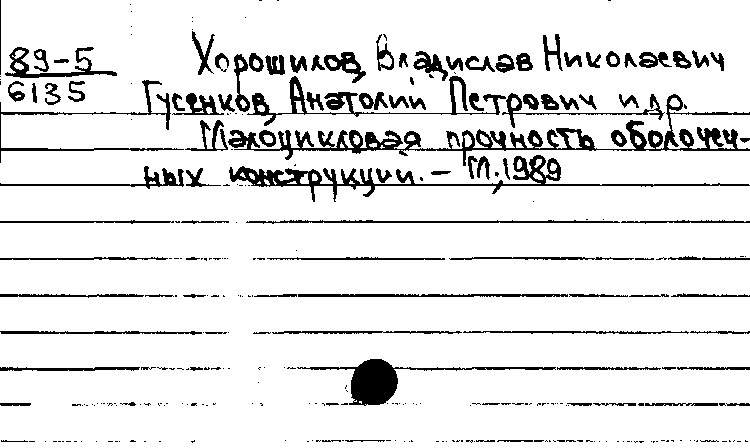 89-5
6135
Хорошилов, Владислав Николаевич
Гусенков, Анатолий Петрович и др.
Малоцикловая прочность оболочеч-
ных конструкции. - М., 1989